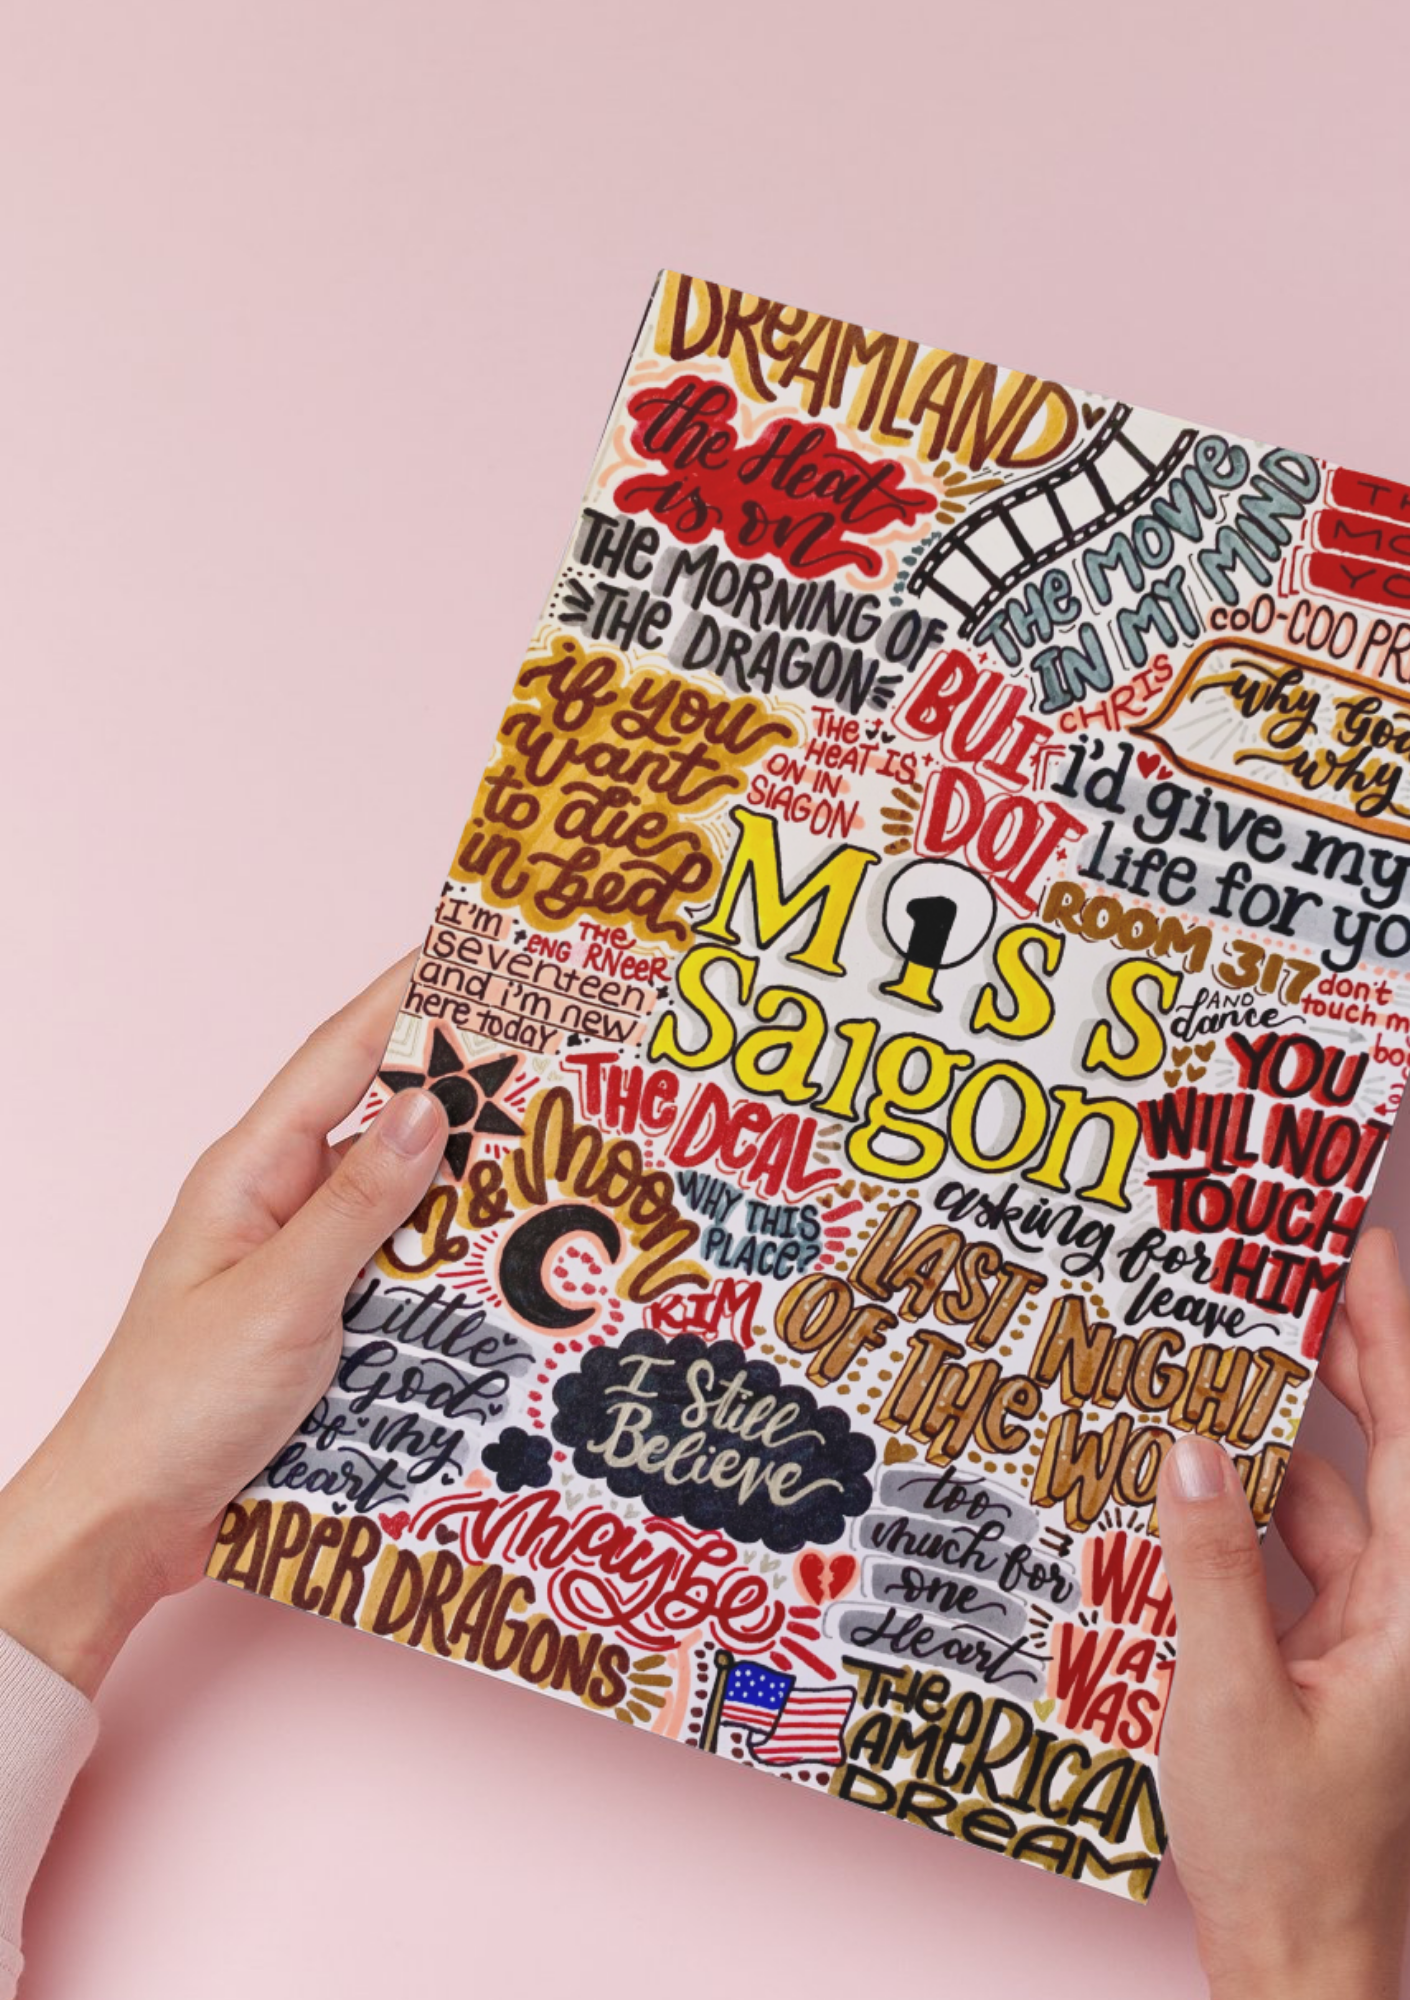 DREAMLAND
the Heat
is on
THE MORNING OF
THE DRAGON
THE MOVIE
IN MY MIND
COO-COO
CHRIS
why God
why
if you
want
to die
in bed
THE
HEAT IS
ON IN
SIAGON
BUI
DOI
i'd give my
life for yo
ROOM 317
don't
touch
AND
dance
I'm
seventeen
and i'm new
here today
THE
ENG RNeeR
MISS
Saigon
YOU
WILL NOT
TOUCH
HIM
THE DEAL
& Moon
WHY THIS
PLACE?
KIM
asking for
leave
LAST NIGHT
OF THE WO
Little
God
of my
heart
I Still
Believe
too
much for
one
Heart
maybe
PAPER DRAGONS
WAS
THE
AMERICAN
DREAM